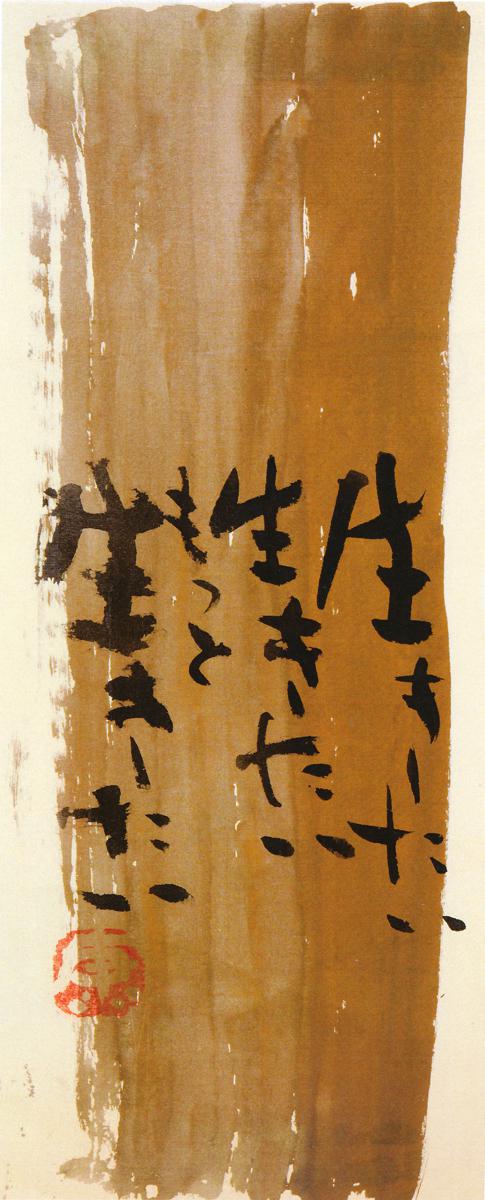 生きたい
生きたい
もっと
生きたい